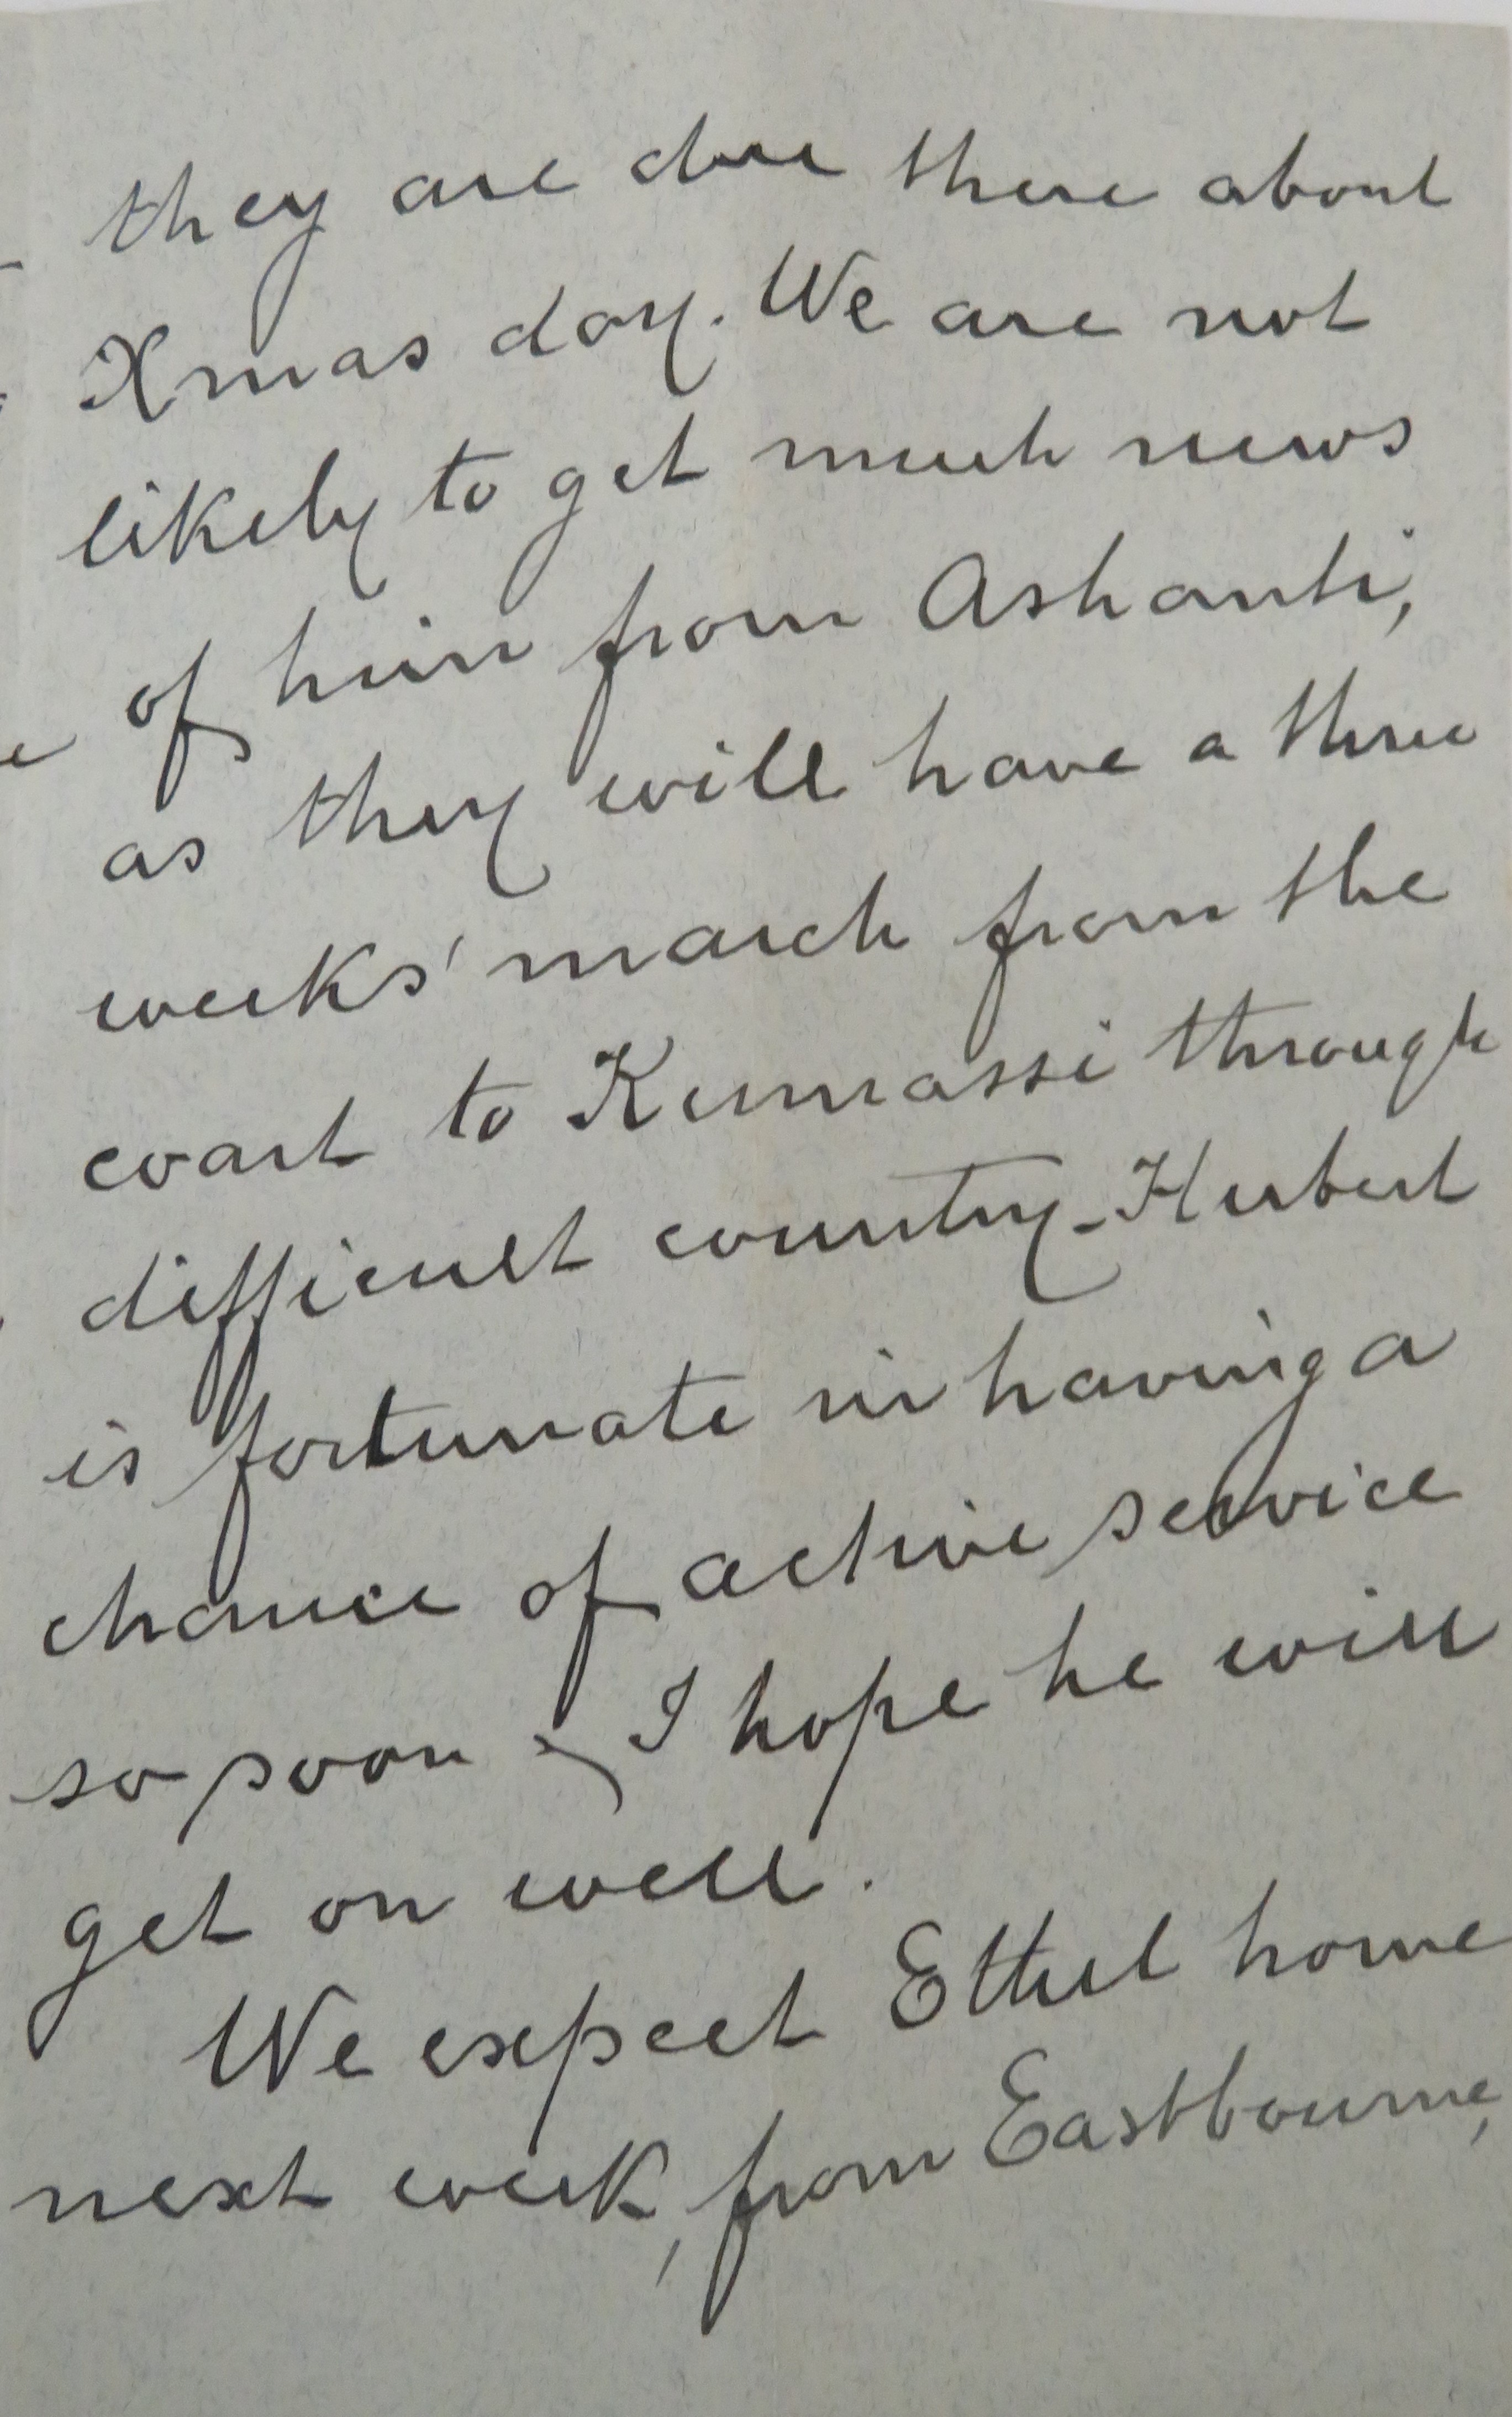 they are due there about
Xmas day. We are not
likely to get much news
of him from Ashanti,
as they will have a three
weeks' march from the
coast to Kumassi through
difficult country. Hubert
is fortunate in having a
chance of active service
so soon & I hope he will
get on well.
We expect Ethel home
next week, from Eastbourne,